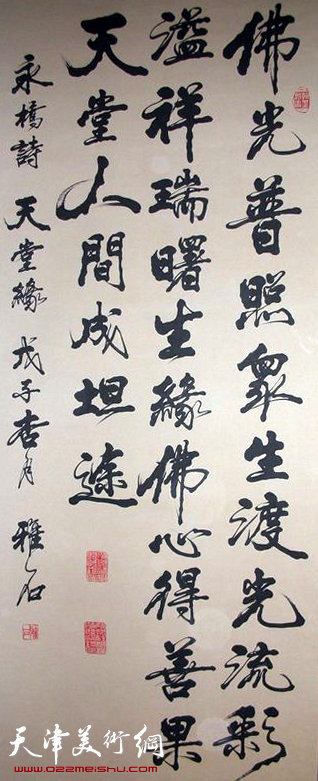 佛光普照衆生渡光流彩
溢祥瑞曙生緣佛心得善果
天堂人間成坦途
永橋詩 天堂緣 戊子杏月 雅石
天津美術網
www.022meishu.com